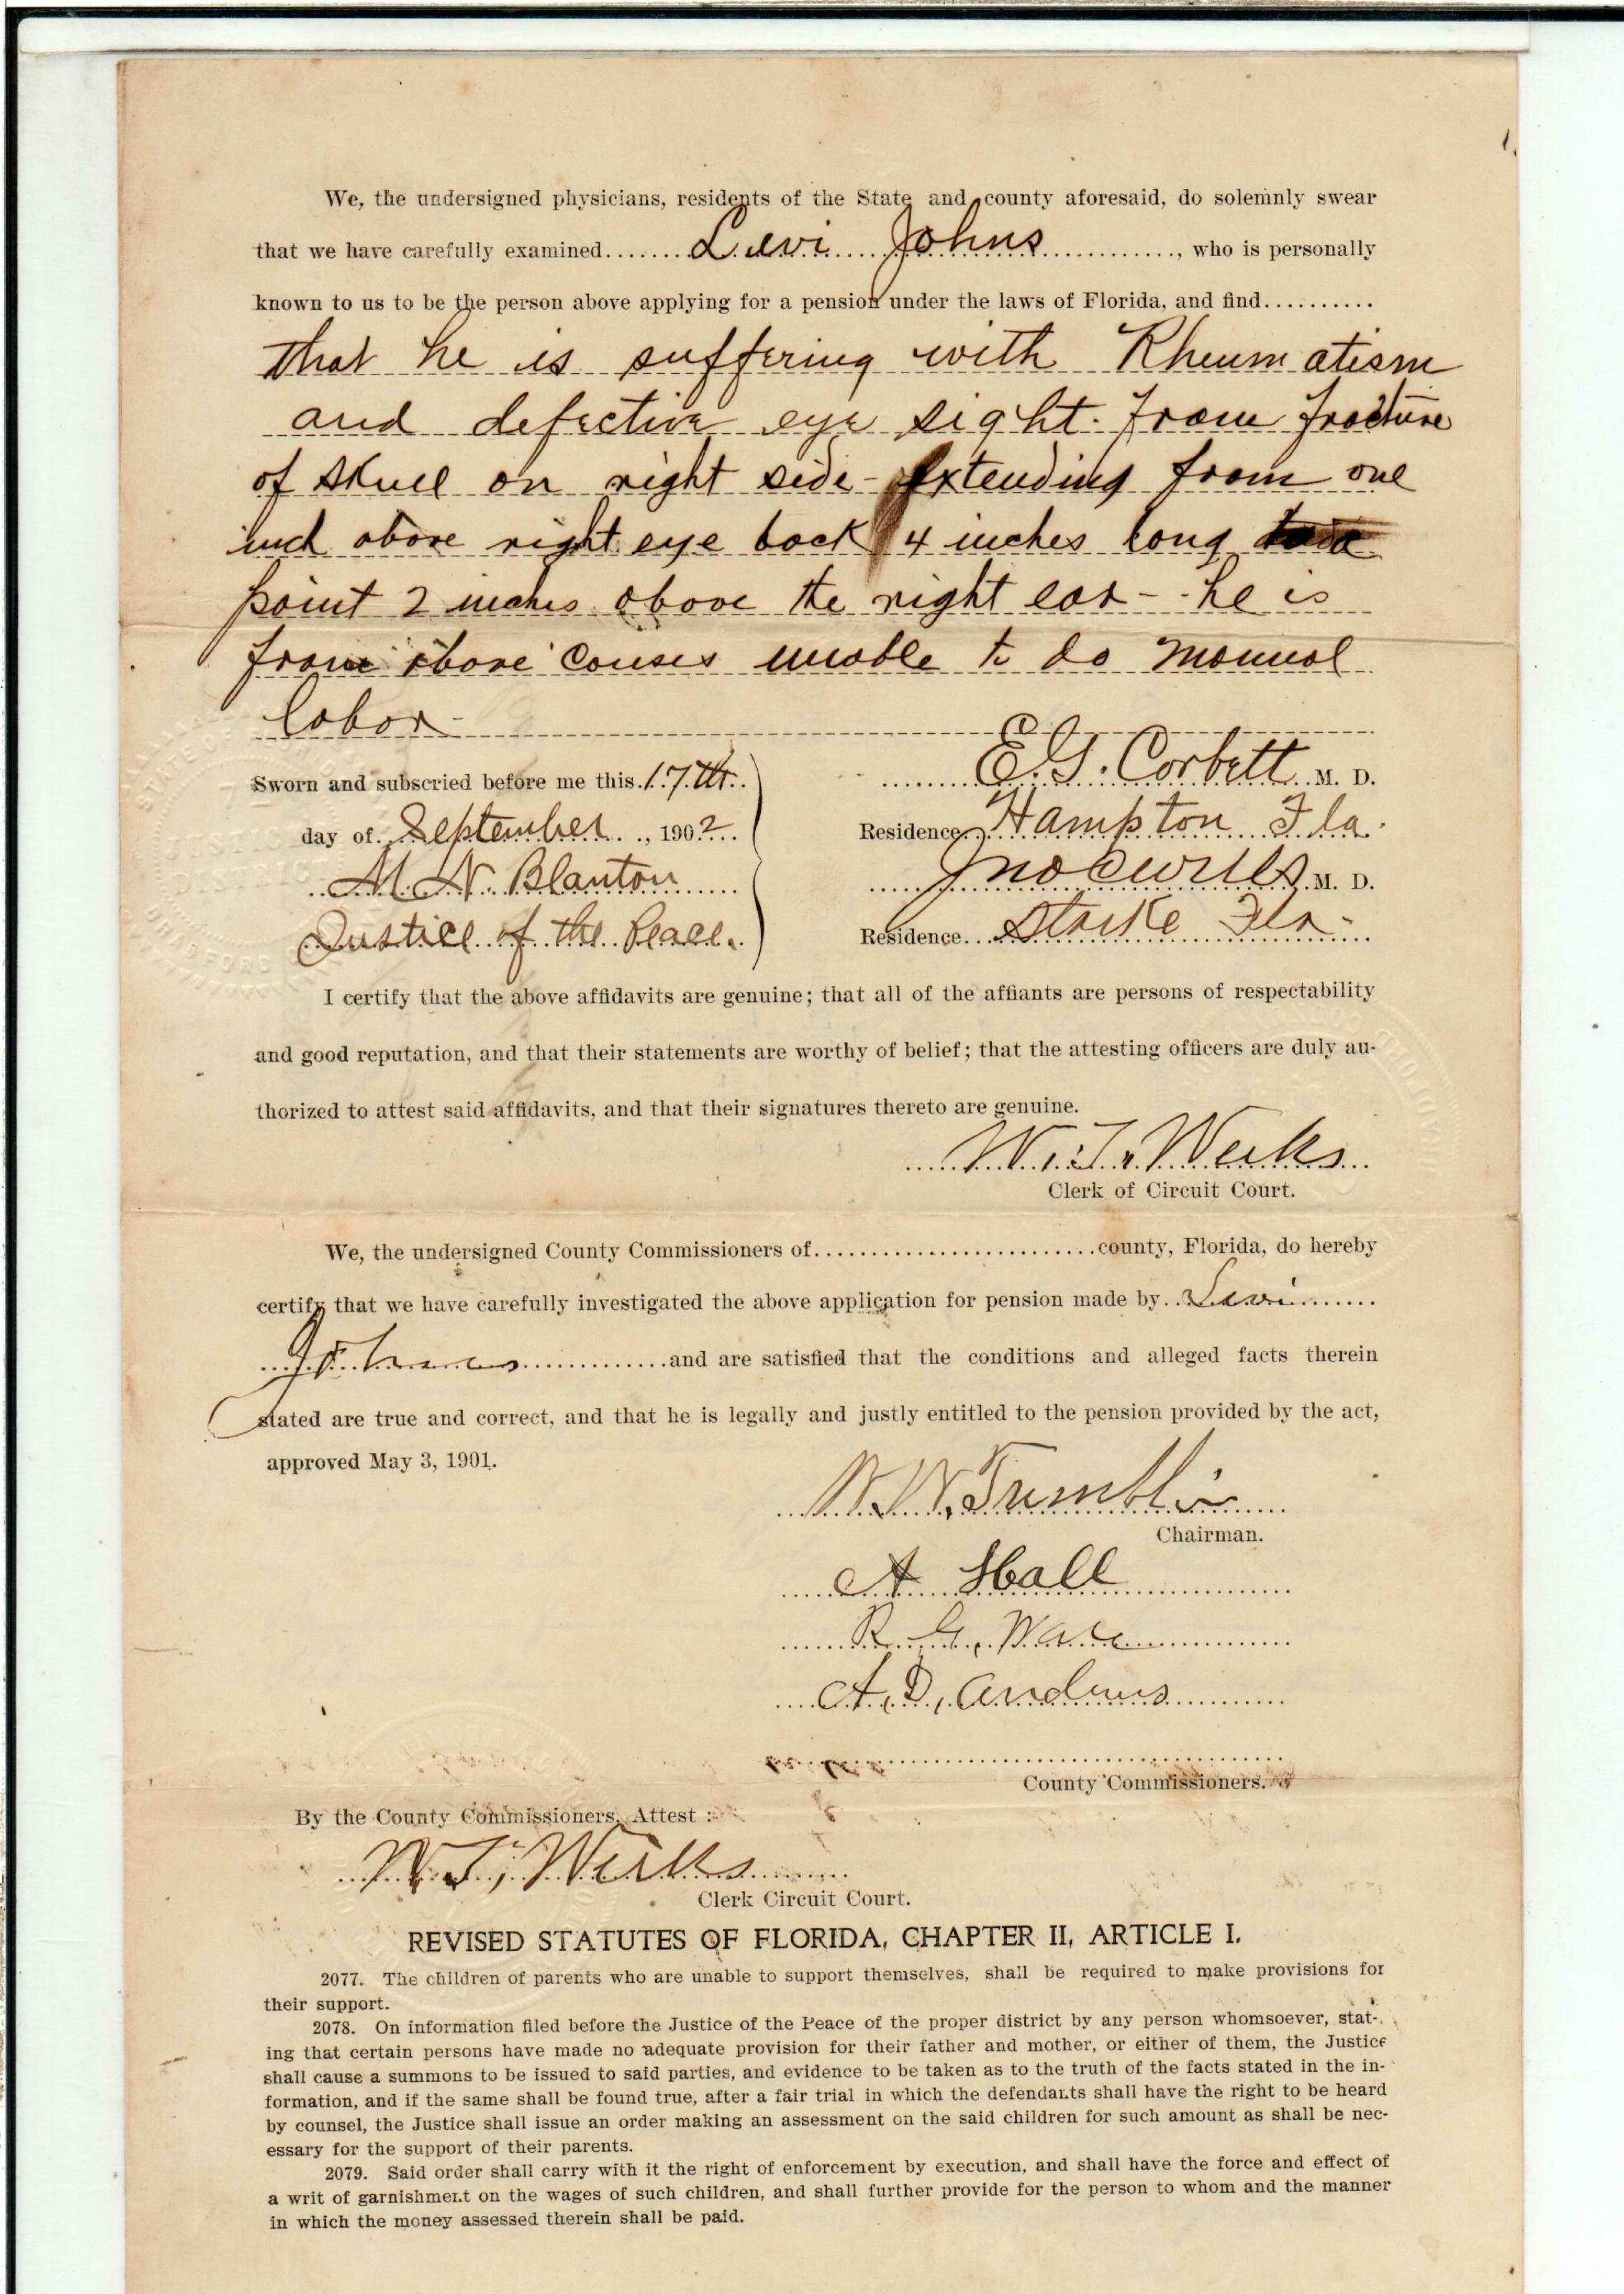 We, the undersigned physicians, residents of the State and county aforesaid, do solemnly swear
that we have carefully examined Levi Johns, who is personally
known to us to be the person above applying for a pension under the laws of Florida, and find
that he is suffering with Rheumatism
and defective eye sight. from fracture
of skull on right side - Extending from one
inch above right eye back 4 inches long to a
point 2 inches above the right ear - he is
from above causes unable to do manual
labor -
Sworn and subscried before me this 17th
day of September, 1902
M. N. Blanton
Justice of the Peace.
E. G. Corbett M. D.
Residence Hampton Fla.
M. D.
Residence Starke Fla -
I certify that the above affidavits are genuine; that all of the affiants are persons of respectability
and good reputation, and that their statements are worthy of belief; that the attesting officers are duly au-
thorized to attest said affidavits, and that their signatures thereto are genuine.
W. T. Weeks
Clerk of Circuit Court.
We, the undersigned County Commissioners of county, Florida, do hereby
certify that we have carefully investigated the above application for pension made by Levi
Johns and are satisfied that the conditions and alleged facts therein
stated are true and correct, and that he is legally and justly entitled to the pension provided by the act,
approved May 3, 1901.
W. W. Tumblin
Chairman.
A Hall
R. G. Ware
A. D. Andrews
County Commissioners.
By the County Commissioners, Attest :
W. T. Weeks
Clerk Circuit Court.
REVISED STATUTES OF FLORIDA, CHAPTER II, ARTICLE I.
2077. The children of parents who are unable to support themselves, shall be required to make provisions for
their support.
2078. On information filed before the Justice of the Peace of the proper district by any person whomsoever, stat-
ing that certain persons have made no adequate provision for their father and mother, or either of them, the Justice
shall cause a summons to be issued to said parties, and evidence to be taken as to the truth of the facts stated in the in-
formation, and if the same shall be found true, after a fair trial in which the defendants shall have the right to be heard
by counsel, the Justice shall issue an order making an assessment on the said children for such amount as shall be nec-
essary for the support of their parents.
2079. Said order shall carry with it the right of enforcement by execution, and shall have the force and effect of
a writ of garnishment on the wages of such children, and shall further provide for the person to whom and the manner
in which the money assessed therein shall be paid.